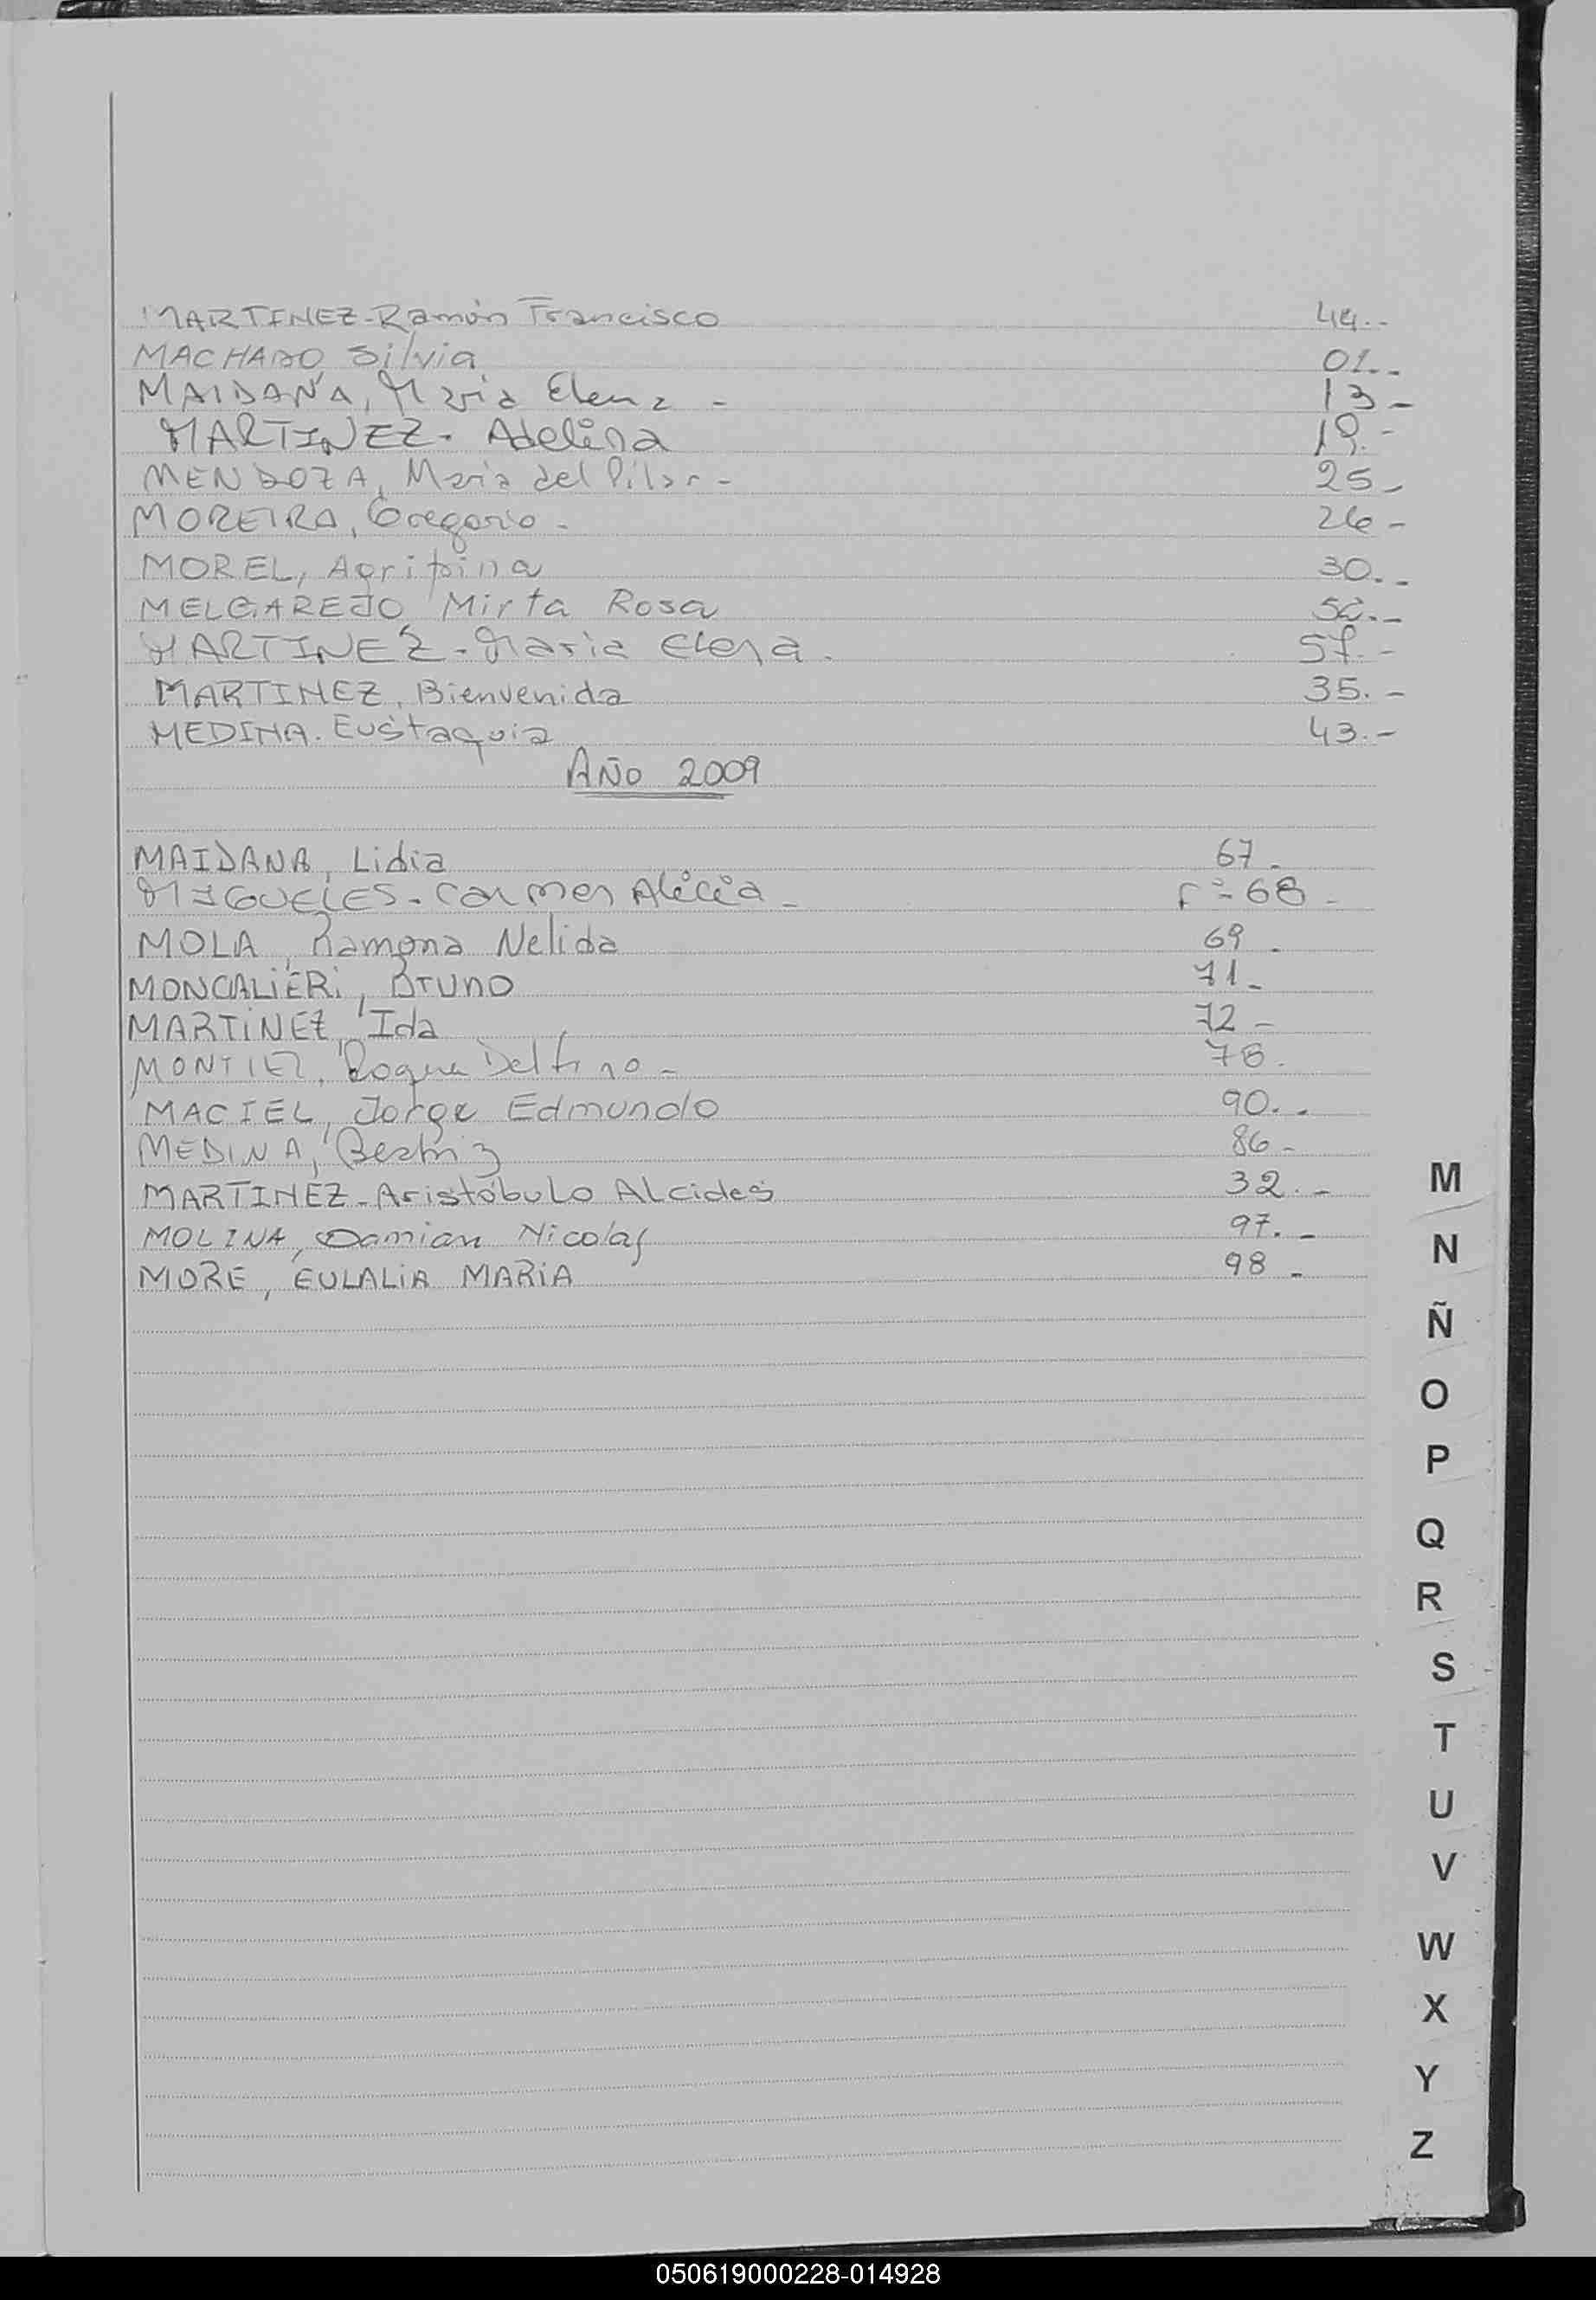 MARTINEZ-Ramón Francisco 44.-
MACHADO Silvia 01.-
MAIDANA, Maria Elena - 13-
MARTINEZ- Adelina 19.-
MENDOZA, Maria del Pilar- 25-
MOREIRA, Gregorio- 26-
MOREL, Agripina 30.-
MELGAREJO Mirta Rosa .-
MARTINEZ-Maria Elena. 57.-
MARTINEZ, Bienvenida 35.-
MEDINA. Eustaquia 43.-
AÑO 2009
MAIDANA, Lidia 67-
MIGUELES-Carmen Alicia- Fº-68-
MOLA, Ramona Nelida 69-
MONCALIERI, Bruno 71-
MARTINEZ, Ida 72-
MONTIEL, Roque Delfino- 78.
MACIEL, Jorge Edmundo 90.-
MEDINA, Beatriz 86-
MARTINEZ-Aristóbulo Alcides 32.-
MOLINA, Damian Nicolas 97.-
MORE, EULALIA MARIA 98-
M
N
Ñ
O
P
Q
R
S
T
U
V
W
X
Y
Z
050619000228-014928